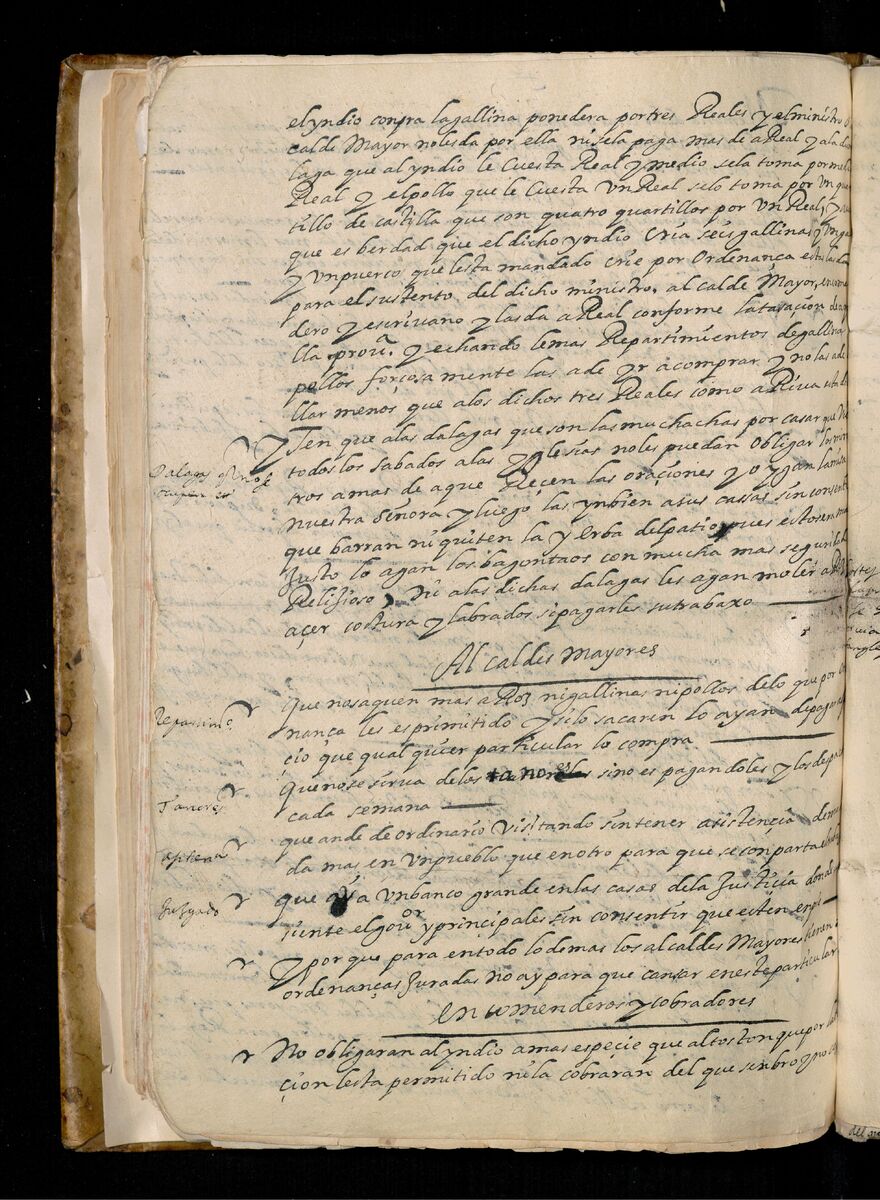 el yndio compra la gallina ponedera por tres Reales y el ministro
calde Mayor no les da por ella ni se la paga mas de a Real y a la da
laga que al yndio le Cuesta Real y medio se la toma por me
Real y el pollo que le Cuesta Un Real se lo toma por Un qua
tillo de castilla que son quatro quartillos por Un Real, y
que es berdad que el dicho yndio Cria seis gallinas y Un ga
y Un puerco que le sta mandado Crie por Ordenança
para el sustento del dicho ministro, alcalde Mayor, encome
dero y escrivano y las da a Real conforme la tasaçion de a
lla prouª. y echandole mas Repartimientos de gallina
pollos forçosamente las a de yr a comprar y no las a de
llar menos que a los dichos tres Reales como aRiva esta
Yten que a las dalagas que son las muchachas por casar que
todos los sabados a las yglesias no les puedan obligar los
tros a mas de a que Reçen las oraciones y oygan la misa
nuestra Señora y luego las ynbien a sus cassas sin consent
que barran ni quiten la yerba del patio pues
Justo lo agan los bagontaos con mucha mas seguri
Relijioso, Ni a las dichas dalagas les agan moler
açer costura y labrados si pagarles su trabaxo
Dalagas q no se
Alcaldes mayores
Que no saquen mas aRoz ni gallinas ni pollos de lo que por
nança les es primitido y si lo sacaren lo ayan de pagar
çio que qual quier particular lo compra
Repartimᵒ
Que no se sirva de los tanores sino es pagandoles y los
cada semana
Tanores
que ande de ordinario visitando sin tener asistençia
da mas en Un pueblo que en otro para que se conparta
que aya Un banco grande en las casas de la Justiçia donde
siente el gouᵒʳ y principales sin consentir que esten en pie
Juzgado
y por que para en todo lo demas los alcaldes Mayores tienen
ordenanças Juradas no ay para que cansar en este particular
Encomenderos y cobradores
No obligaran al yndio a mas espeçie que al toston que por la
çion le sta permitido ni la cobraran del que senbro y no